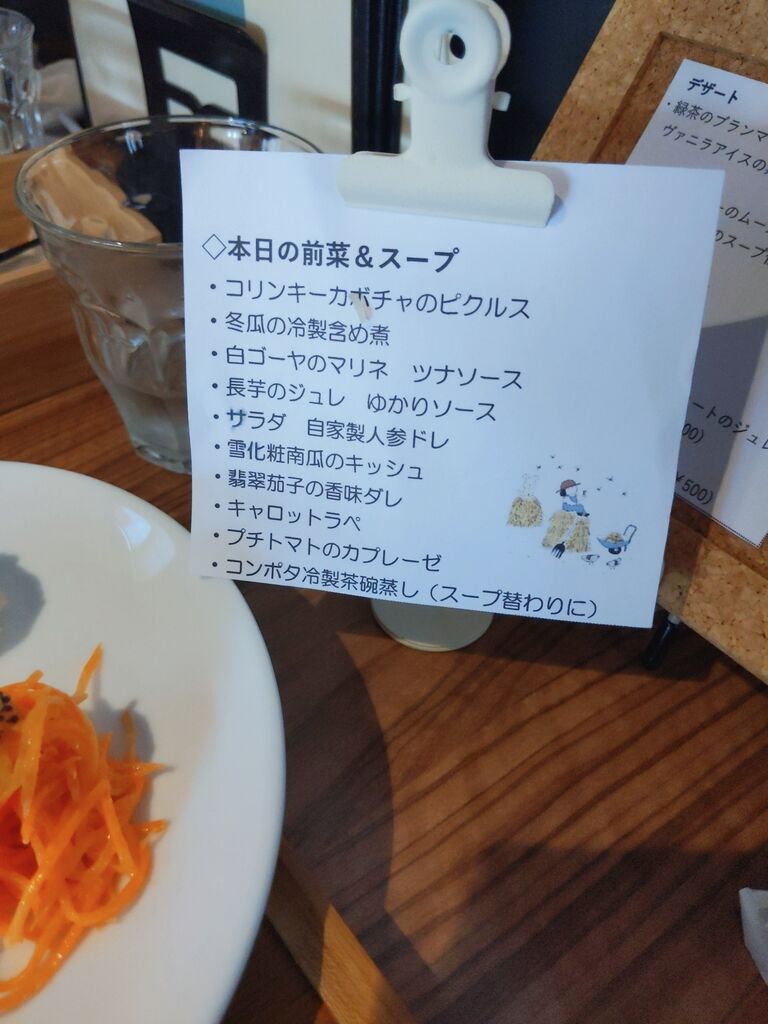 ◇本日の前菜＆スープ
・コリンキーカボチャのピクルス
・冬瓜の冷製含め煮
・白ゴーヤのマリネ　ツナソース
・長芋のジュレ　ゆかりソース
・サラダ　自家製人参ドレ
・雪化粧南瓜のキッシュ
・翡翠茄子の香味ダレ
・キャロットラペ
・プチトマトのカプレーゼ
・コンポタ冷製茶碗蒸し（スープ替わりに）
デザート
・緑茶のブランマ
ヴァニラアイスの
のムー
のスープ
ートのジュレ
00)
¥500)